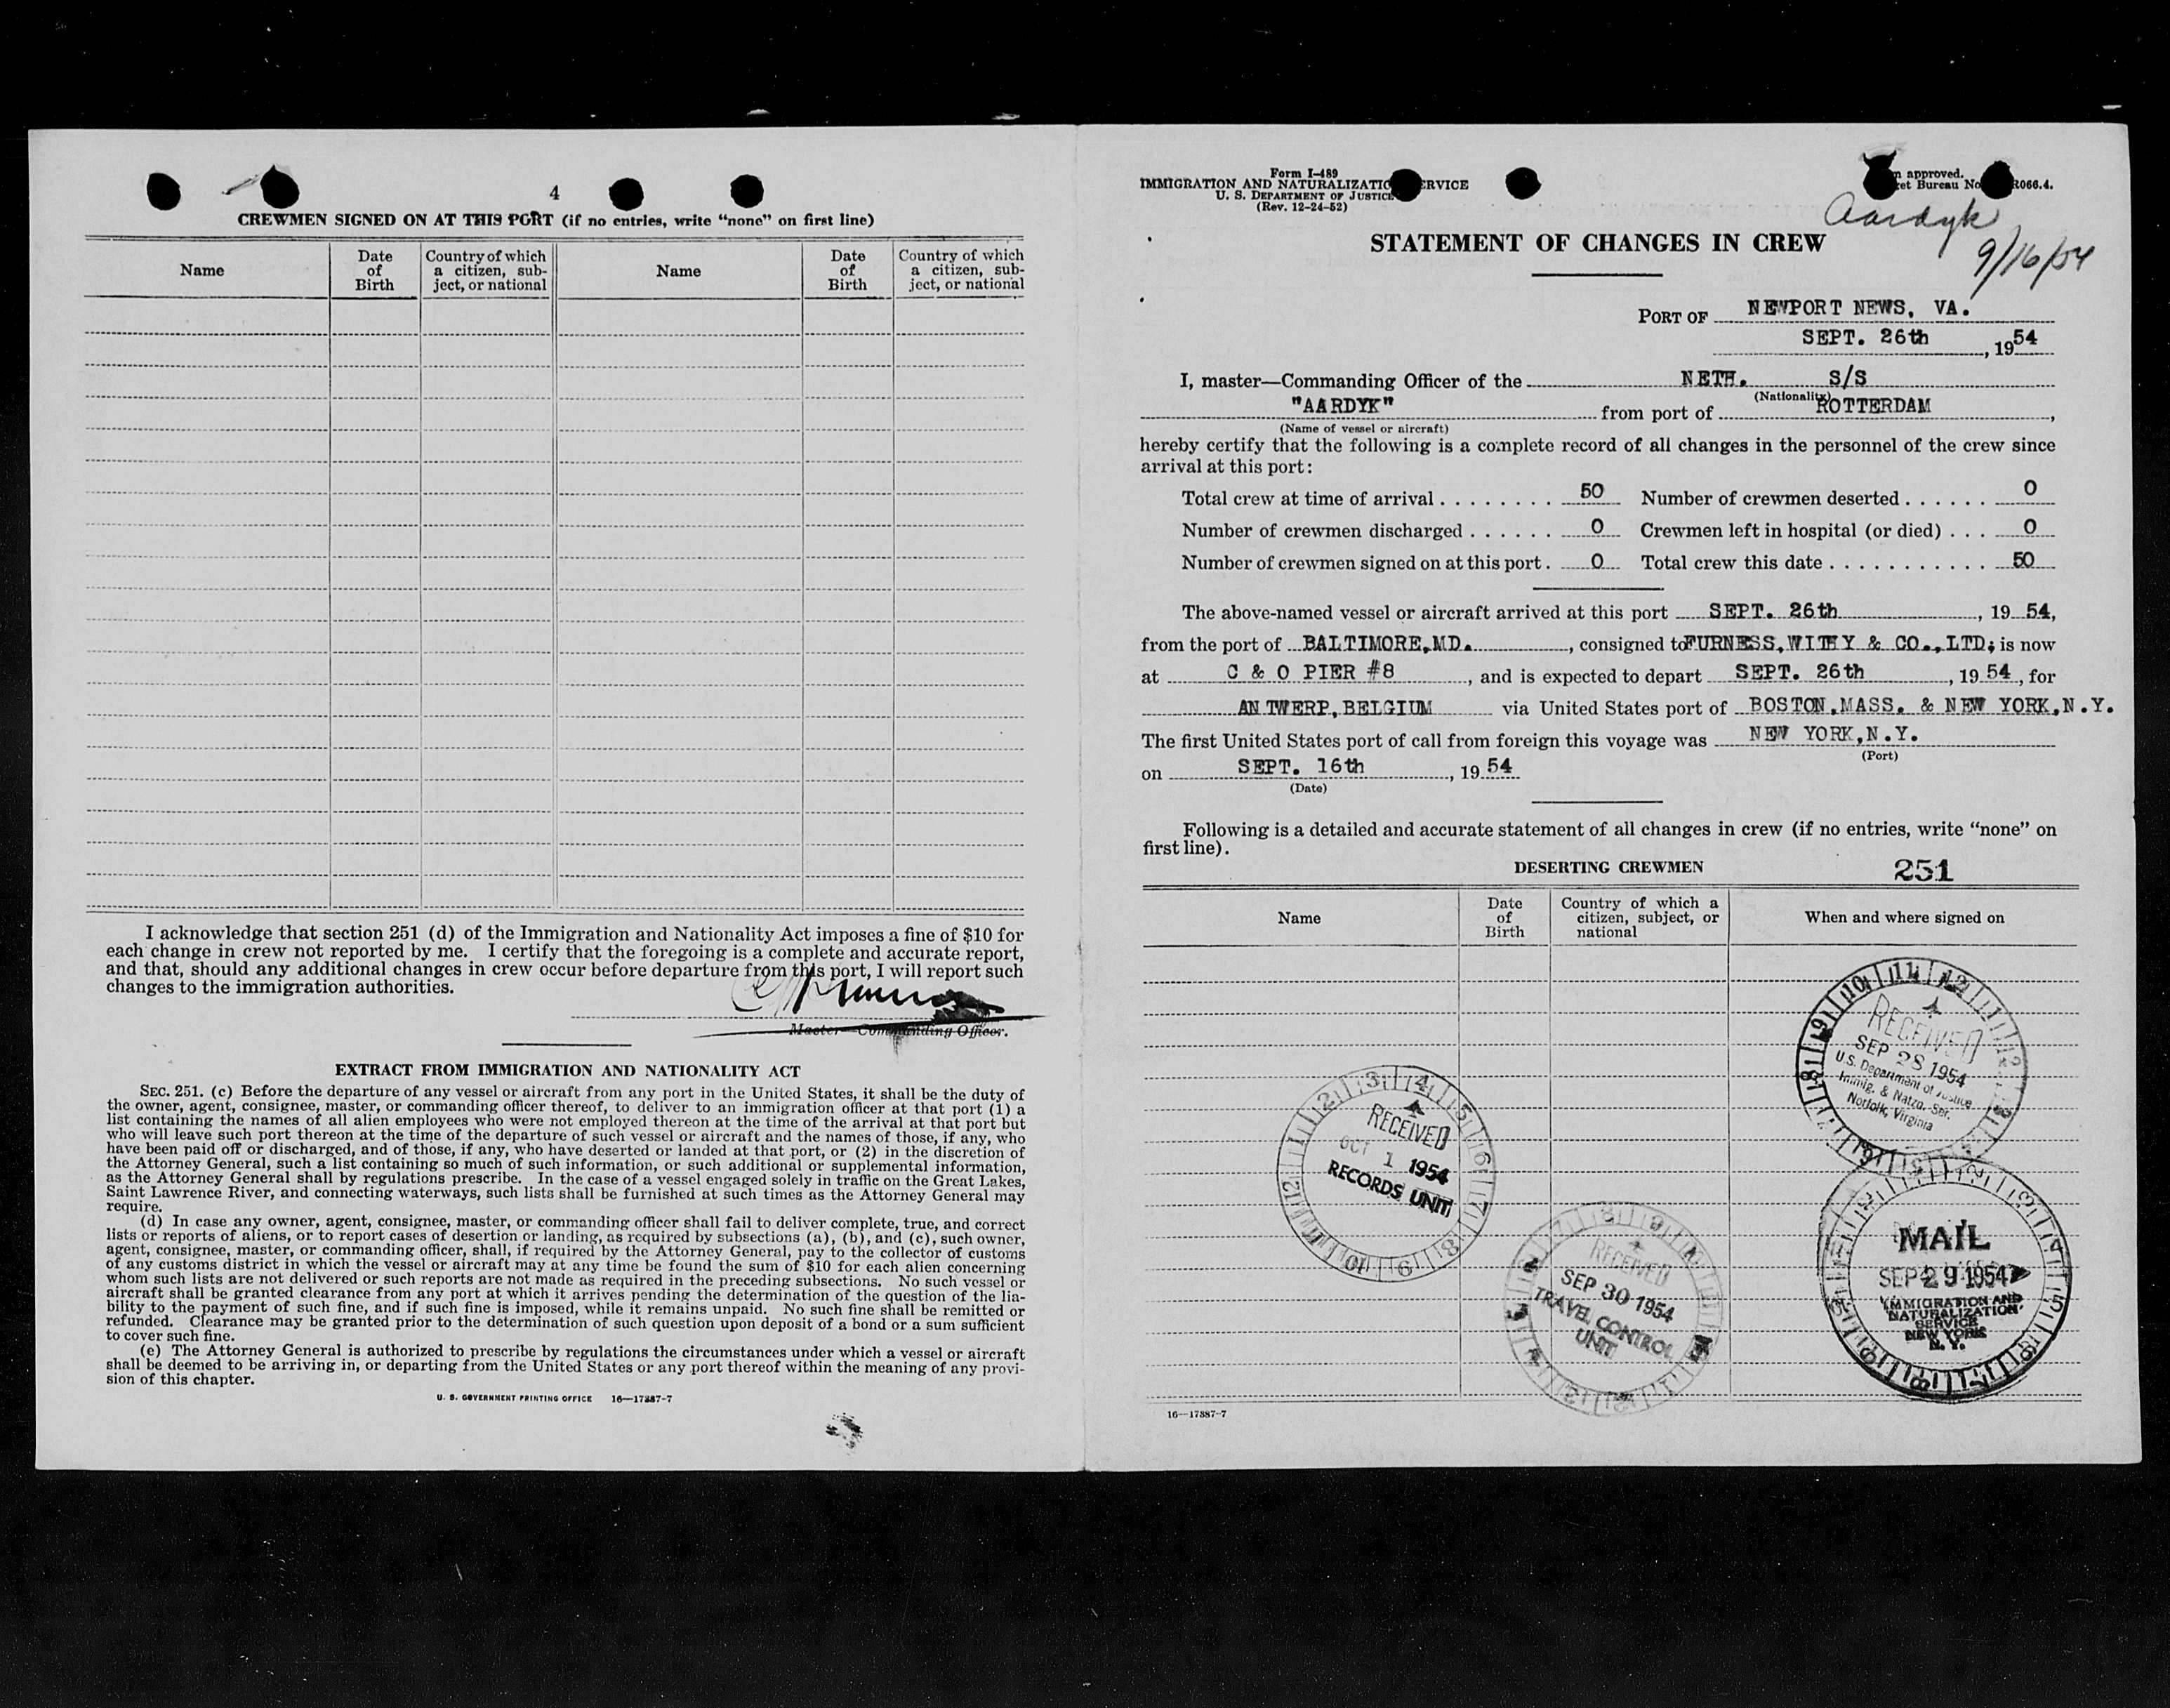 4
CREWMEN SIGNED ON AT THIS PORT (if no entries, write “none” on first line)
Name
Date of Birth
Country of which a citizen, sub-ject, or national
Name
Date of Birth
Country of which a citizen, sub-ject, or national
I acknowledge that section 251 (d) of the Immigration and Nationality Act imposes a fine of $10 for
each change in crew not reported by me. I certify that the foregoing is a complete and accurate report,
and that, should any additional changes in crew occur before departure from this port, I will report such
changes to the immigration authorities.
Master—Commanding Officer.
EXTRACT FROM IMMIGRATION AND NATIONALITY ACT
SEC. 251. (c) Before the departure of any vessel or aircraft from any port in the United States, it shall be the duty of
the owner, agent, consignee, master, or commanding officer thereof, to deliver to an immigration officer at that port (1) a
list containing the names of all alien employees who were not employed thereon at the time of the arrival at that port but
who will leave such port thereon at the time of the departure of such vessel or aircraft and the names of those, if any, who
have been paid off or discharged, and of those, if any, who have deserted or landed at that port, or (2) in the discretion of
the Attorney General, such a list containing so much of such information, or such additional or supplemental information,
as the Attorney General shall by regulations prescribe. In the case of a vessel engaged solely in traffic on the Great Lakes,
Saint Lawrence River, and connecting waterways, such lists shall be furnished at such times as the Attorney General may
require.
(d) In case any owner, agent, consignee, master, or commanding officer shall fail to deliver complete, true, and correct
lists or reports of aliens, or to report cases of desertion or landing, as required by subsections (a), (b), and (c), such owner,
agent, consignee, master, or commanding officer, shall, if required by the Attorney General, pay to the collector of customs
of any customs district in which the vessel or aircraft may at any time be found the sum of $10 for each alien concerning
whom such lists are not delivered or such reports are not made as required in the preceding subsections. No such vessel or
aircraft shall be granted clearance from any port at which it arrives pending the determination of the question of the lia-
bility to the payment of such fine, and if such fine is imposed, while it remains unpaid. No such fine shall be remitted or
refunded. Clearance may be granted prior to the determination of such question upon deposit of a bond or a sum sufficient
to cover such fine.
(e) The Attorney General is authorized to prescribe by regulations the circumstances under which a vessel or aircraft
shall be deemed to be arriving in, or departing from the United States or any port thereof within the meaning of any provi-
sion of this chapter.
U. S. GOVERNMENT PRINTING OFFICE 16—17387-7
Form I-489
IMMIGRATION AND NATURALIZATIO ERVICE
U. S. DEPARTMENT OF JUSTICE
(Rev. 12-24-52)
approved.
et Bureau No R066.4.
Aardyk
9/16/54
STATEMENT OF CHANGES IN CREW
PORT OF NEWPORT NEWS, VA.
SEPT. 26th, 1954
I, master—Commanding Officer of the NETH. S/S
(Nationality)
"AARDYK" from port of ROTTERDAM,
(Name of vessel or aircraft)
hereby certify that the following is a complete record of all changes in the personnel of the crew since
arrival at this port:
Total crew at time of arrival 50 Number of crewmen deserted 0
Number of crewmen discharged 0 Crewmen left in hospital (or died) 0
Number of crewmen signed on at this port 0 Total crew this date 50
The above-named vessel or aircraft arrived at this port SEPT. 26th, 19 54,
from the port of BALTIMORE,MD., consigned to FURNESS,WITHY & CO.,LTD; is now
at C & O PIER #8, and is expected to depart SEPT. 26th, 19 54, for
ANTWERP,BELGIUM via United States port of BOSTON,MASS. & NEW YORK,N.Y.
The first United States port of call from foreign this voyage was NEW YORK,N.Y.
(Port)
on SEPT. 16th, 19 54
(Date)
Following is a detailed and accurate statement of all changes in crew (if no entries, write “none” on
first line).
DESERTING CREWMEN
251
Name
Date of Birth
Country of which a citizen, subject, or national
When and where signed on
RECEIVED
SEP 28 1954
U.S. Department of Justice
Immig. & Natzn. Ser.
Norfolk, Virginia
RECEIVED
OCT 1 1954
RECORDS UNIT
RECEIVED
SEP 30 1954
TRAVEL CONTROL
UNIT
MAIL
SEP 29 1954
IMMIGRATION AND
NATURALIZATION
SERVICE
NEW YORK
N. Y.
16—17387-7